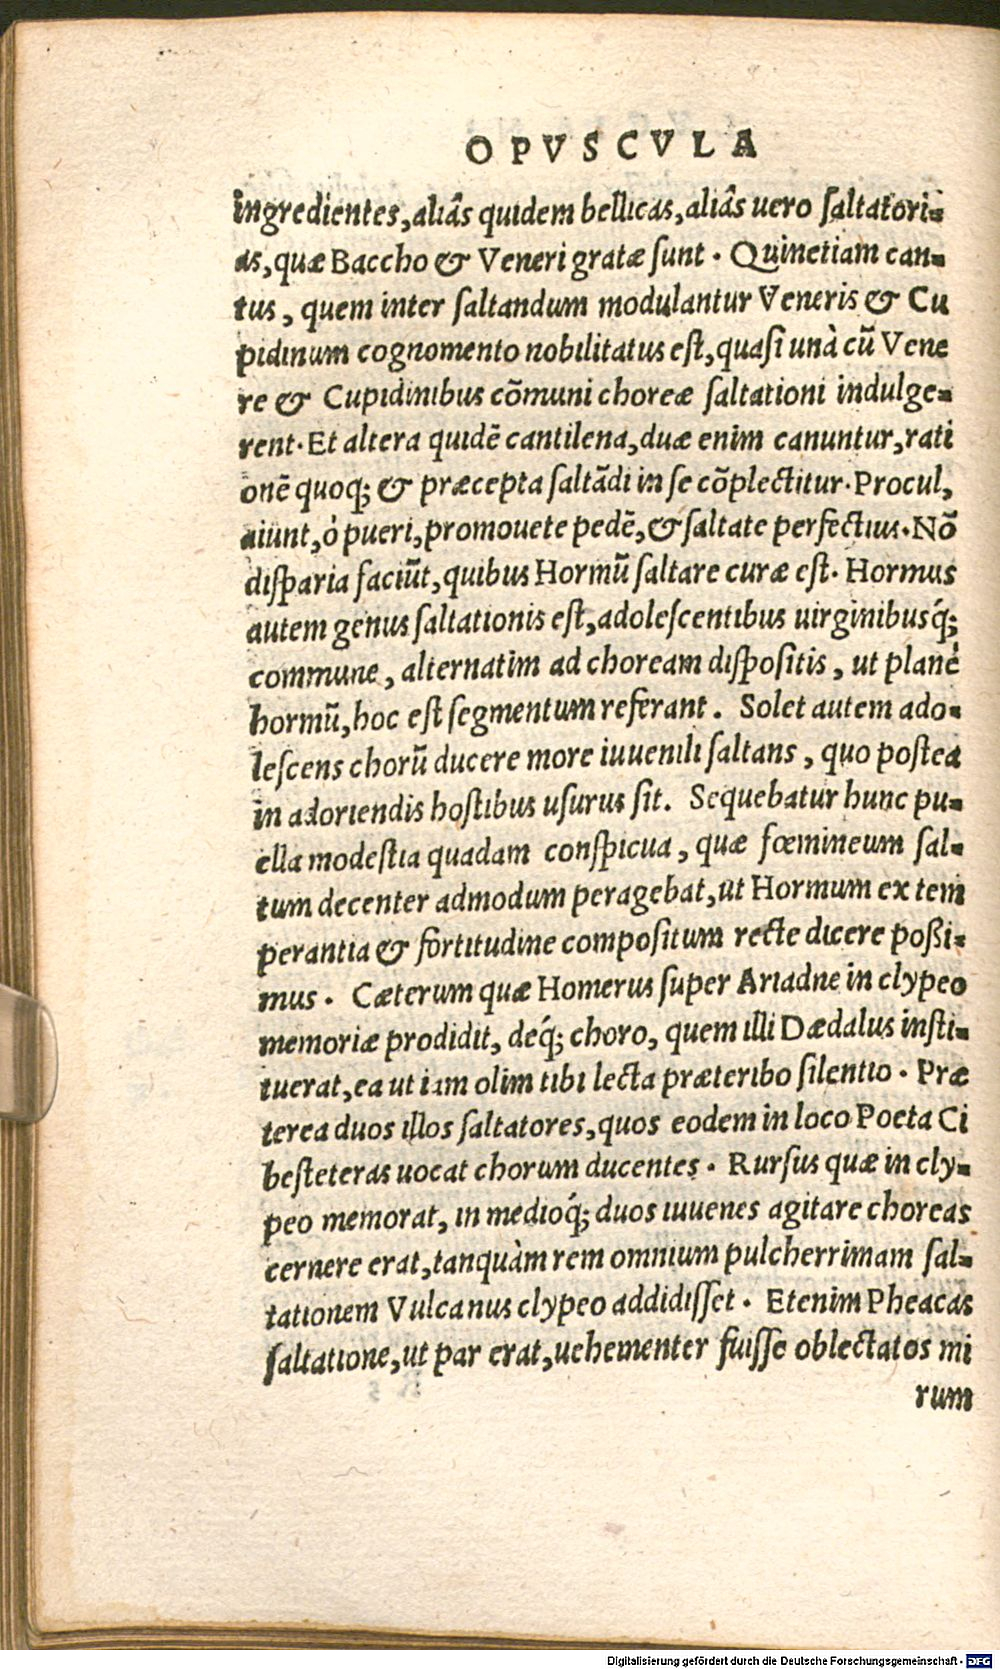 OPVSCVLA
ingredientes, aliâs quidem bellicas, aliâs uero saltatori-
as, quæ Baccho & Veneri gratæ sunt. Quinetiam can-
tus, quem inter saltandum modulantur Veneris & Cu
pidinum cognomento nobilitatus est, quasi unà cū Vene
re & Cupidinibus cōmuni choreæ saltationi indulge-
rent. Et altera quidē cantilena, duæ enim canuntur, rati
onē quoq; & præcepta saltādi in se cōplectitur. Procul,
aiunt, ò pueri, promouete pedē, & saltate perfectius. Nō
disparia faciūt, quibus Hormū saltare curæ est. Hormus
autem genus saltationis est, adolescentibus uirginibusq́;
commune, alternatim ad choream dispositis, ut planè
hormū, hoc est segmentum referant. Solet autem ado-
lescens chorū ducere more iuuenili saltans, quo postea
in adoriendis hostibus usurus sit. Sequebatur hunc pu-
ella modestia quadam conspicua, quæ fœmineum sal-
tum decenter admodum peragebat, ut Hormum ex tem
perantia & fortitudine compositum recte dicere poßi-
mus. Cæterum quæ Homerus super Ariadne in clypeo
memoriæ prodidit, deq́; choro, quem illi Dædalus insti-
tuerat, ea ut iam olim tibi lecta præteribo silentio. Præ
terea duos illos saltatores, quos eodem in loco Poeta Ci
besteteras uocat chorum ducentes. Rursus quæ in cly-
peo memorat, in medioq́; duos iuuenes agitare choreas
cernere erat, tanquàm rem omnium pulcherrimam sal-
tationem Vulcanus clypeo addidisset. Etenim Pheacas
saltatione, ut par erat, uehementer fuisse oblectatos mi
rum
Digitalisierung gefördert durch die Deutsche Forschungsgemeinschaft - DFG